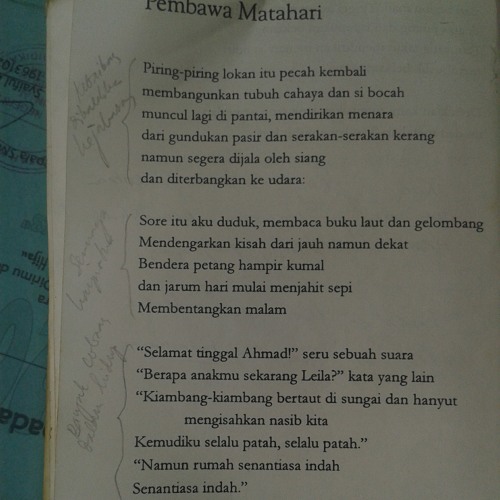 Pembawa Matahari
Piring-piring lokan itu pecah kembali
membangunkan tubuh cahaya dan si bocah
muncul lagi di pantai, mendirikan menara
dari gundukan pasir dan serakan-serakan kerang
namun segera dijala oleh siang
dan diterbangkan ke udara:
Sore itu aku duduk, membaca buku laut dan gelombang
Mendengarkan kisah dari jauh namun dekat
Bendera petang hampir kumal
dan jarum hari mulai menjahit sepi
Membentangkan malam
“Selamat tinggal Ahmad!” seru sebuah suara
“Berapa anakmu sekarang Leila?” kata yang lain
“Kiambang-kiambang bertaut di sungai dan hanyut
mengisahkan nasib kita
Kemudiku selalu patah, selalu patah.”
“Namun rumah senantiasa indah
Senantiasa indah.”